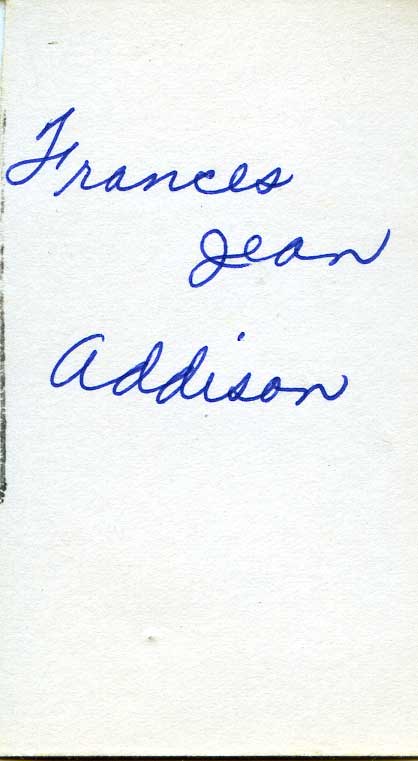 Frances
Jean
Addison